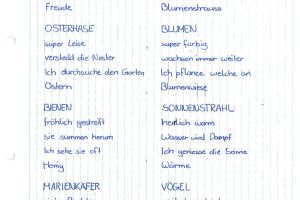 Freude
OSTERHASE
super leise
versteckt die Nester
Ich durchsuche den Garten
Ostern
BIENEN
fröhlich gestreift
sie summen herum
Ich sehe sie oft
Honig
MARIENKÄFER
Blumenstrauss
BLUMEN
super farbig
wachsen immer weiter
Ich pflanze welche an
Blumenwiese
SONNENSTRAHL
herrlich warm
Wasser wird Dampf
Ich geniesse die Sonne
Wärme
VÖGEL